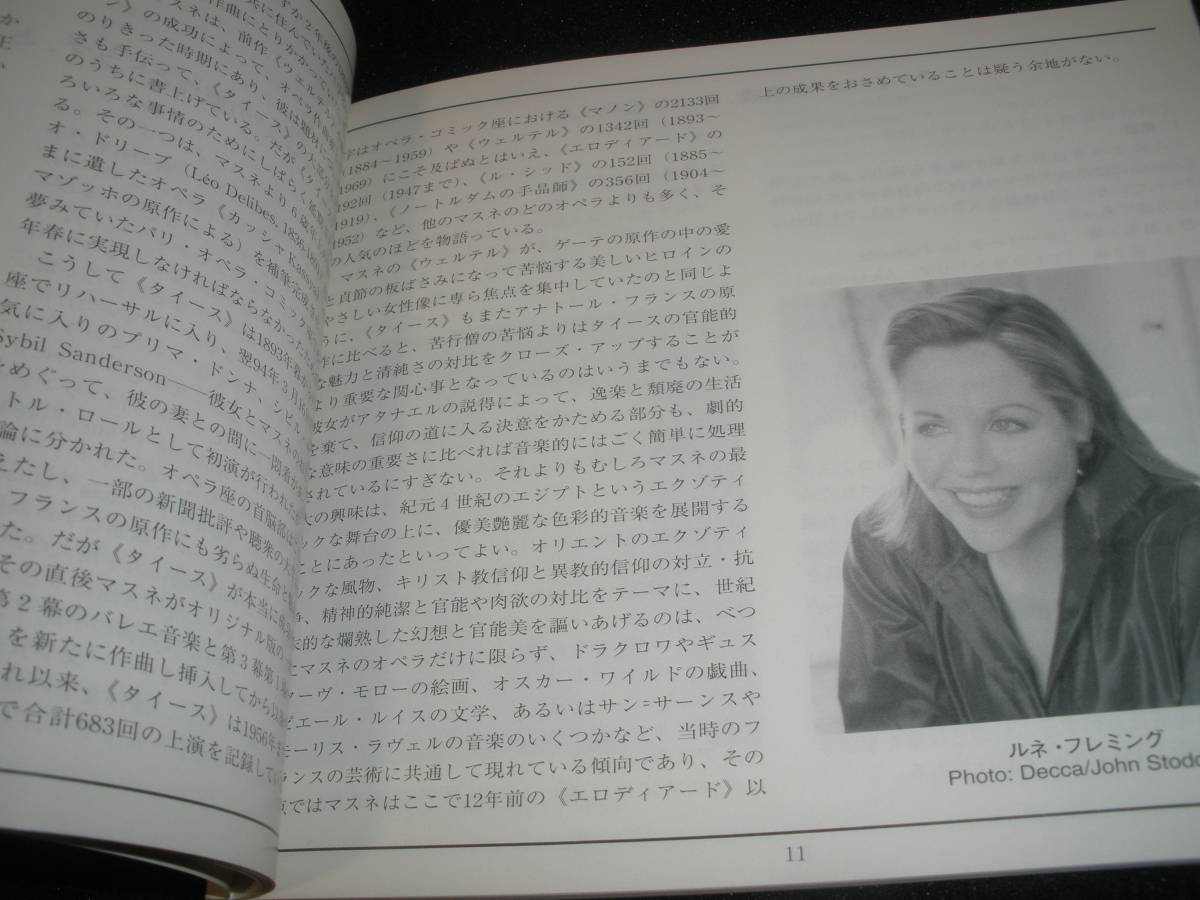 か
王
ずか2年後の
作曲にとりかかってい
マスネは、前作《ウェルテル》
ン》の成功によって、オペラ作曲家
のりきった時期にあり、彼は題材
さも手伝って、《タイース》の大部分
のうちに書上げている。だが《タイ
ろいろな事情のためにしばらく
る。その一つは、マスネより6歳年
オ・ドリーブ (Léo Delibes, 1836-189
まに遺したオペラ《カッシャ Kass
マゾッホの原作による》を補筆完
夢みていたパリ・オペラ・コミック
年春に実現しなければならなかった
こうして《タイース》は1893年暮
座でリハーサルに入り、翌94年3月16
気に入りのプリマ・ドンナ、シビル・
Sybil Sanderson——彼女とマスネの
をめぐって、彼の妻との間に一悶着が
トル・ロールとして初演が行われた
論に分かれた。オペラ座の首脳部は
えたし、一部の新聞批評や聴衆の
フランスの原作にも劣らぬ生命と
た。だが《タイース》が本当に
その直後マスネがオリジナル版の
第2幕のバレエ音楽と第3幕第1
を新たに作曲し挿入してから以
れ以来、《タイース》は1956年
で合計683回の上演を記録して
字はオペラ・コミック座における《マノン》の2133回
(1884〜1959) や《ウェルテル》の1342回 (1893〜
1969) にこそ及ばぬとはいえ、《エロディアード》の
192回 (1947まで)、《ル・シッド》の152回 (1885〜
1919)、《ノートルダムの手品師》の356回 (1904〜
1952) など、他のマスネのどのオペラよりも多く、そ
の人気のほどを物語っている。
マスネの《ウェルテル》が、ゲーテの原作の中の愛
と貞節の板ばさみになって苦悩する美しいヒロインの
やさしい女性像に専ら焦点を集中していたのと同じよ
うに、《タイース》もまたアナトール・フランスの原
作に比べると、苦行僧の苦悩よりはタイースの官能的
な魅力と清純さの対比をクローズ・アップすることが
より重要な関心事となっているのはいうまでもない。
彼女がアタナエルの説得によって、逸楽と頽廃の生活
を棄て、信仰の道に入る決意をかためる部分も、劇的
な意味の重要さに比べれば音楽的にはごく簡単に処理
されているにすぎない。それよりもむしろマスネの最
大の興味は、紀元4世紀のエジプトというエクゾティ
ックな舞台の上に、優美艶麗な色彩的音楽を展開する
ことにあったといってよい。オリエントのエクゾティ
ックな風物、キリスト教信仰と異教的信仰の対立・抗
争、精神的純潔と官能や肉欲の対比をテーマに、世紀
末的な爛熟した幻想と官能美を謳いあげるのは、べつ
にマスネのオペラだけに限らず、ドラクロワやギュス
ターヴ・モローの絵画、オスカー・ワイルドの戯曲、
ピエール・ルイスの文学、あるいはサン=サーンスや
モーリス・ラヴェルの音楽のいくつかなど、当時のフ
ランスの芸術に共通して現れている傾向であり、その
点ではマスネはここで12年前の《エロディアード》以
上の成果をおさめていることは疑う余地がない。
ルネ・フレミング
Photo: Decca/John Stodd
11